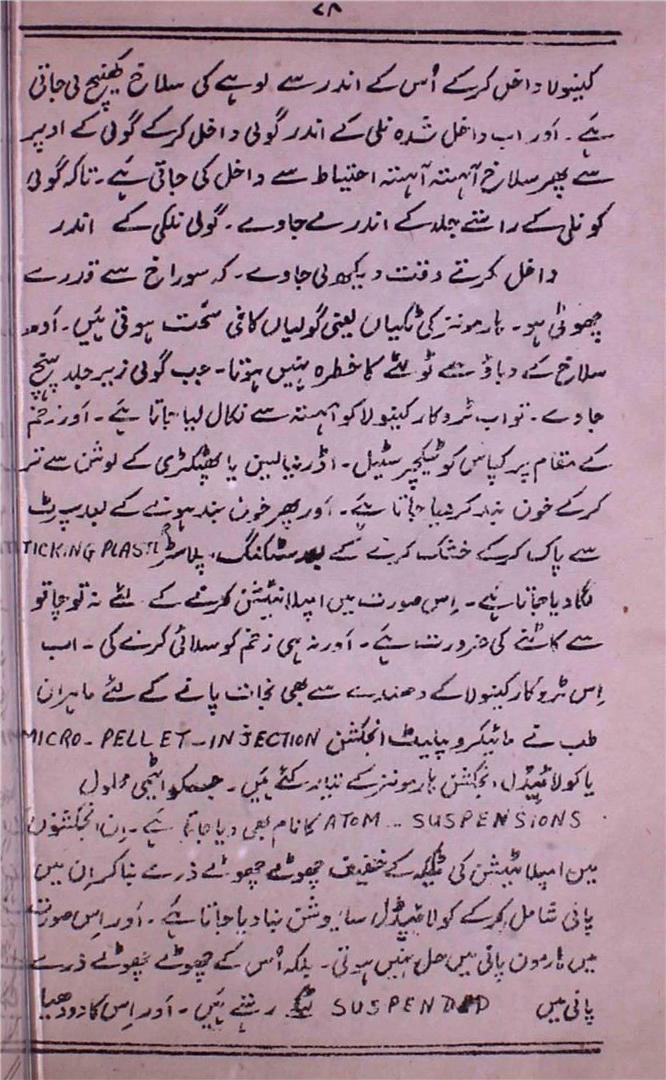 ۷۸
کینولا داخل کرکے اُس کے اندر سے لوہے کی سلاخ کھینچ لی جاتی
ہے۔ اَور اب داخل شدہ نلی کے اندر گولی داخل کرکے گولی کے اوپر
سے پھر سلاخ آہستہ آہستہ احتیاط سے داخل کی جاتی ہے۔ تاکہ گولی
کو نلی کے راستے جلد کے اندر لے جاوے۔ گولی نلکی کے اندر
داخل کرتے وقت دیکھ لی جاوے۔ کہ سوراخ سے قدرے
چھوٹی ہو۔ ہارمونز کی ٹکیاں یعنی گولیاں کافی سخت ہوتی ہَیں۔ اَور
سلاخ کے دباؤ سے ٹوٹنے کا خطرہ نہیں ہوتا۔ جب گولی زیر جلد پہنچ
جاوے۔ تو اب ٹروکار کینولا کو آہستہ سے نکال لیا جاتا ہَے۔ اَور زخم
کے مقام پر کپاس کو ٹنکچر سٹیل۔ اڈرنیالین یا پھٹکڑی کے لوشن سے تر
کرکے خون بند کر دیا جاتا ہَے۔ اَور پھر خون بند ہونے کے بعد سپرٹ
سے پاک کرکے خشک کرنے کے بعد سٹکنگ پلاسٹر TICKING PLAST
لگا دیا جاتا ہَے۔ اِس صورت میں امپلانٹیشن کرنے کے لئے نہ تو چاقو
سے کاٹنے کی ضرورت ہَے۔ اَور نہ ہی زخم کو سلائی کرنے کی۔ اب
اِس ٹروکار کینولا کے دھندے سے بھی نجات پانے کے لئے ماہران
طب نے مائیکرو پیلیٹ انجکشن MICRO-PELLET-INJECTION
یا کولائیڈل انجکشن ہارمونز کے تیار کئے ہَیں۔ جسکو ایٹمی محلول
ATOM - SUSPENSIONS کا نام بھی دیا جاتا ہَے۔ اِن انجکشنوں
میں امپلانٹیشن کی ٹکیہ کے خفیف چھوٹے چھوٹے ذرے بنا کر ان میں
پانی شامل کرکے کولائیڈل سلیوشن بنا دیا جاتا ہَے۔ اَور اِس صورت
میں ہارمون پانی میں حل نہیں ہوتی۔ بلکہ اُس کے چھوٹے چھوٹے ذرے
پانی میں SUSPENDED رہتے ہَیں۔ اَور اِس کا دودھیا